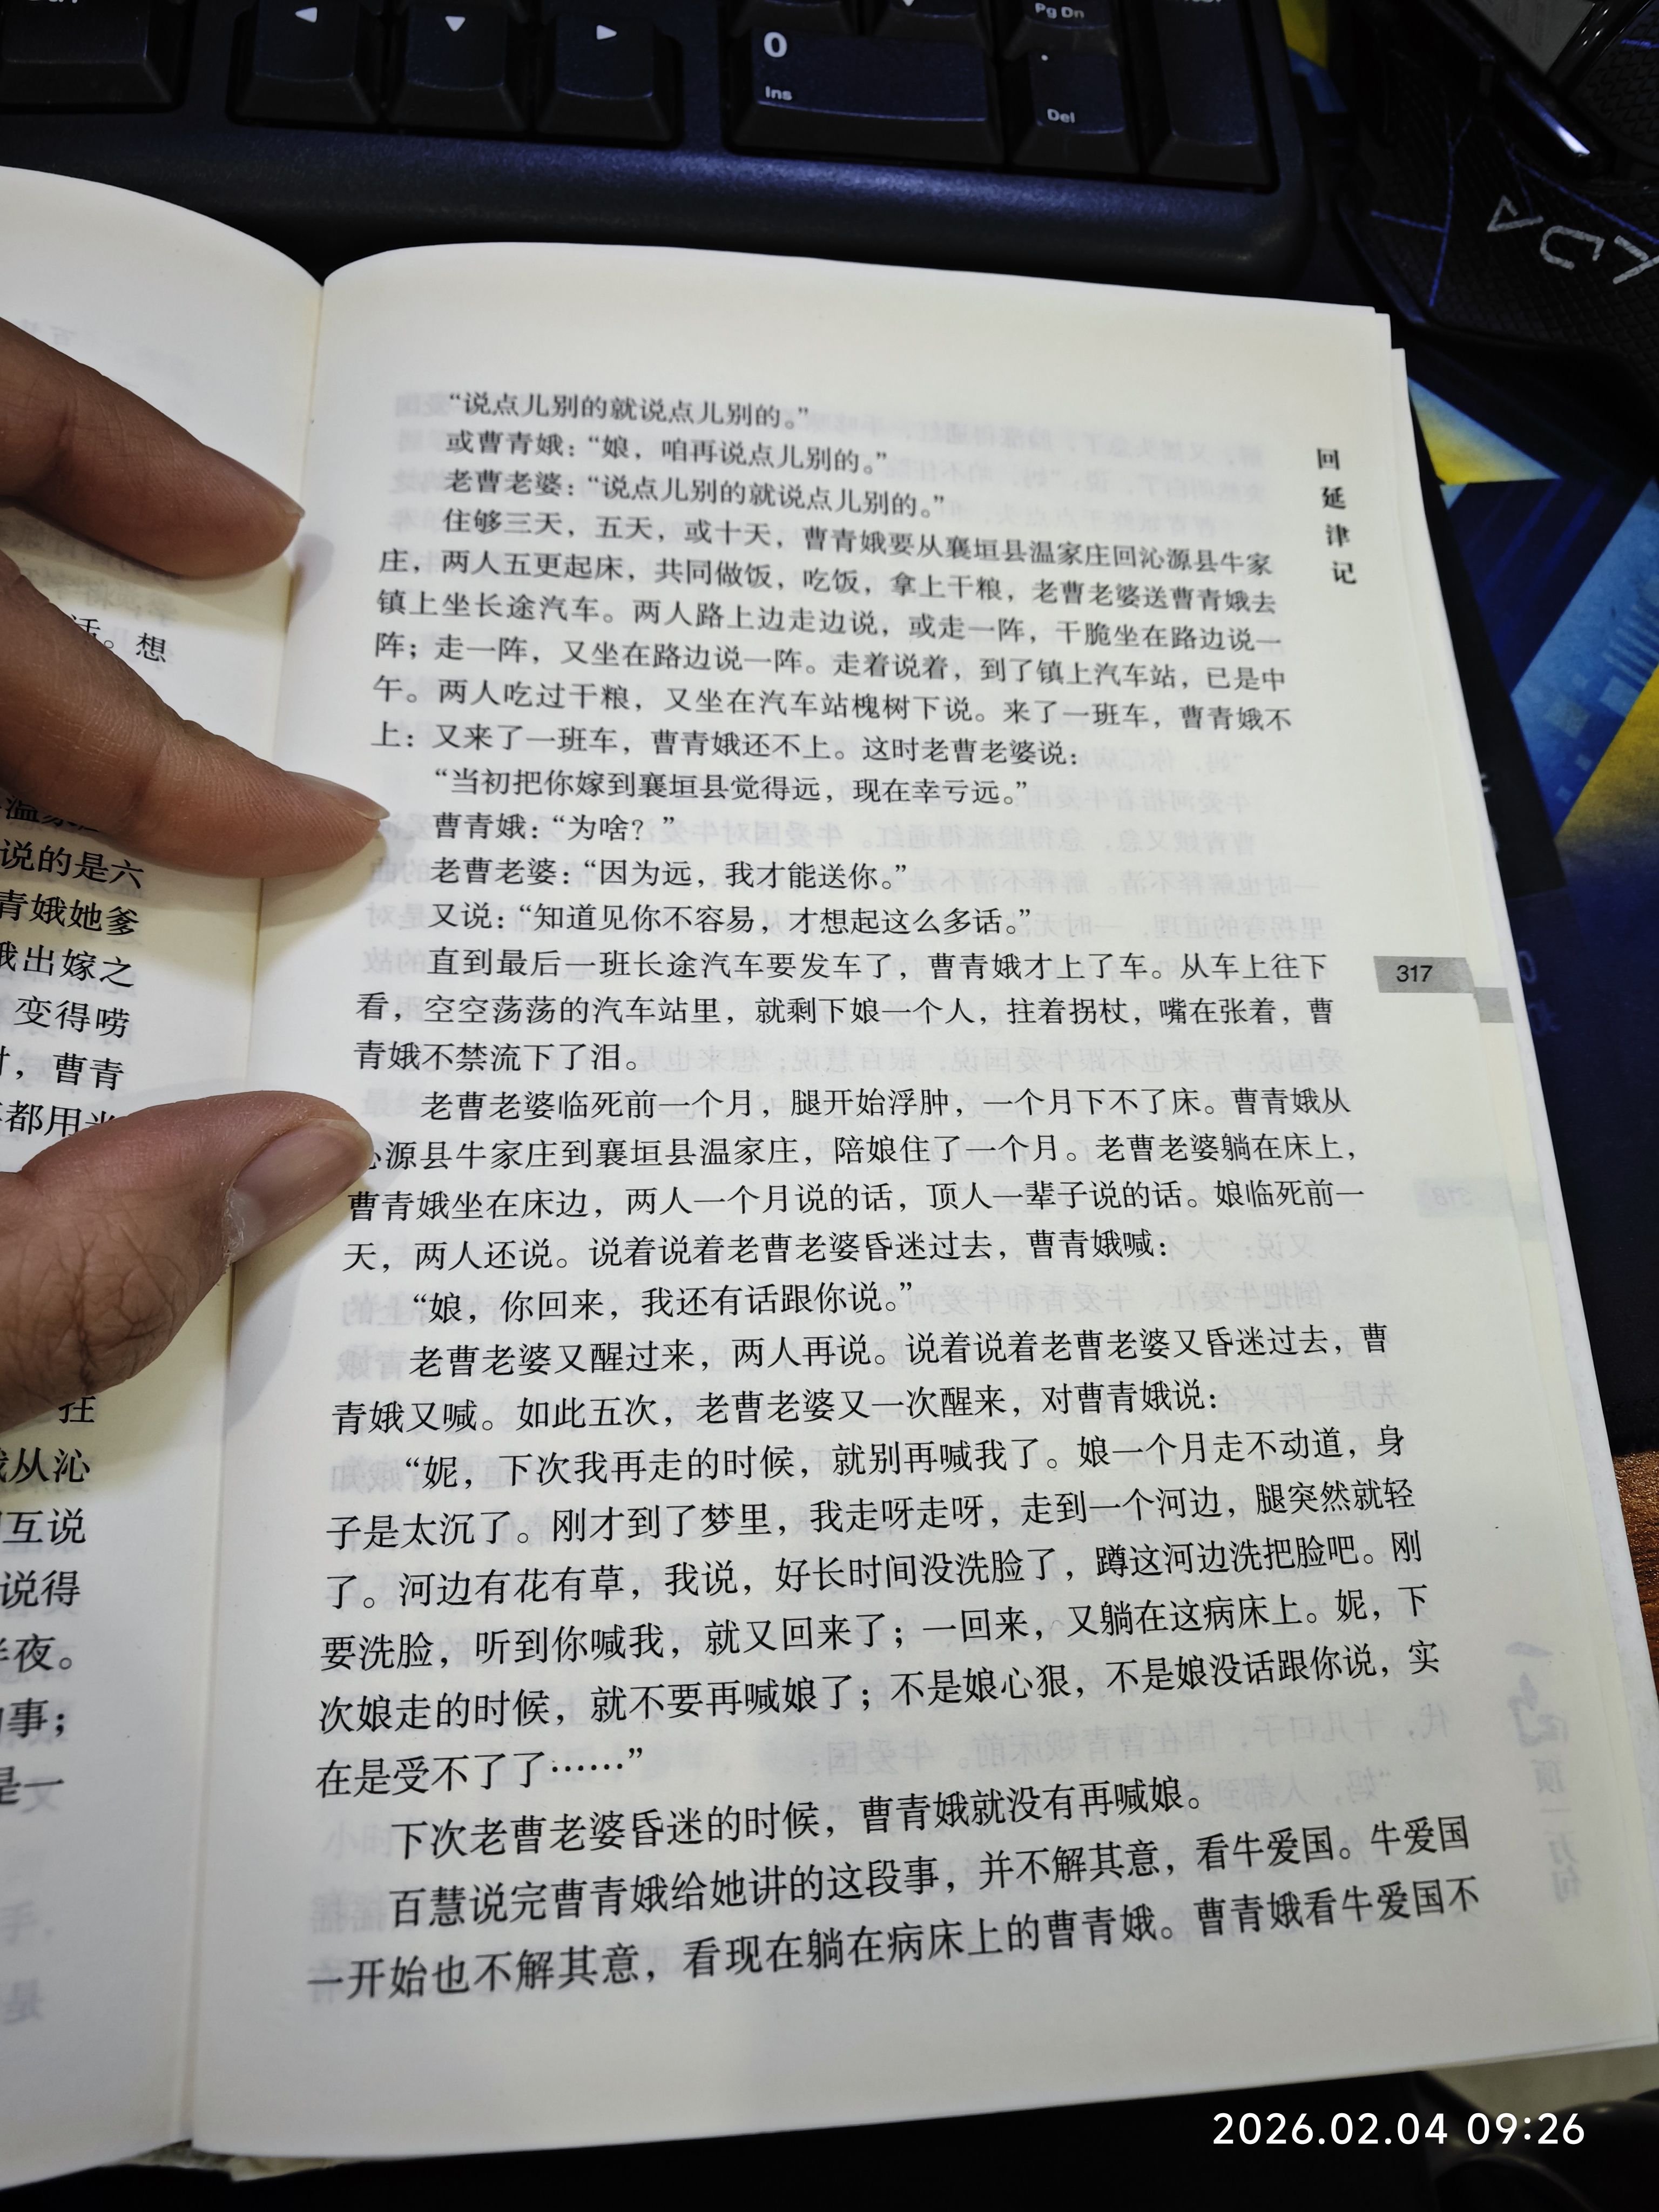 Pg Dn
0
Ins
Del
话。想
说的是六
青娥她爹
出嫁之
变得唠
，曹青
都用
拄
从沁
互说
说得
夜。
事；
是一
手，
“说点儿别的就说点儿别的。”
或曹青娥：“娘，咱再说点儿别的。”
老曹老婆：“说点儿别的就说点儿别的。”
住够三天，五天，或十天，曹青娥要从襄垣县温家庄回沁源县牛家
庄，两人五更起床，共同做饭，吃饭，拿上干粮，老曹老婆送曹青娥去
镇上坐长途汽车。两人路上边走边说，或走一阵，干脆坐在路边说一
阵；走一阵，又坐在路边说一阵。走着说着，到了镇上汽车站，已是中
午。两人吃过干粮，又坐在汽车站槐树下说。来了一班车，曹青娥不
上：又来了一班车，曹青娥还不上。这时老曹老婆说：
“当初把你嫁到襄垣县觉得远，现在幸亏远。”
曹青娥：“为啥？”
老曹老婆：“因为远，我才能送你。”
又说：“知道见你不容易，才想起这么多话。”
直到最后一班长途汽车要发车了，曹青娥才上了车。从车上往下
看，空空荡荡的汽车站里，就剩下娘一个人，拄着拐杖，嘴在张着，曹
青娥不禁流下了泪。
老曹老婆临死前一个月，腿开始浮肿，一个月下不了床。曹青娥从
沁源县牛家庄到襄垣县温家庄，陪娘住了一个月。老曹老婆躺在床上，
曹青娥坐在床边，两人一个月说的话，顶人一辈子说的话。娘临死前一
天，两人还说。说着说着老曹老婆昏迷过去，曹青娥喊：
“娘，你回来，我还有话跟你说。”
老曹老婆又醒过来，两人再说。说着说着老曹老婆又昏迷过去，曹
青娥又喊。如此五次，老曹老婆又一次醒来，对曹青娥说：
“妮，下次我再走的时候，就别再喊我了。娘一个月走不动道，身
子是太沉了。刚才到了梦里，我走呀走呀，走到一个河边，腿突然就轻
了。河边有花有草，我说，好长时间没洗脸了，蹲这河边洗把脸吧。刚
要洗脸，听到你喊我，就又回来了；一回来，又躺在这病床上。妮，下
次娘走的时候，就不要再喊娘了；不是娘心狠，不是娘没话跟你说，实
在是受不了了……”
下次老曹老婆昏迷的时候，曹青娥就没有再喊娘。
百慧说完曹青娥给她讲的这段事，并不解其意，看牛爱国。牛爱国
一开始也不解其意，看现在躺在病床上的曹青娥。曹青娥看牛爱国不
回延津记
317
2026.02.04 09:26